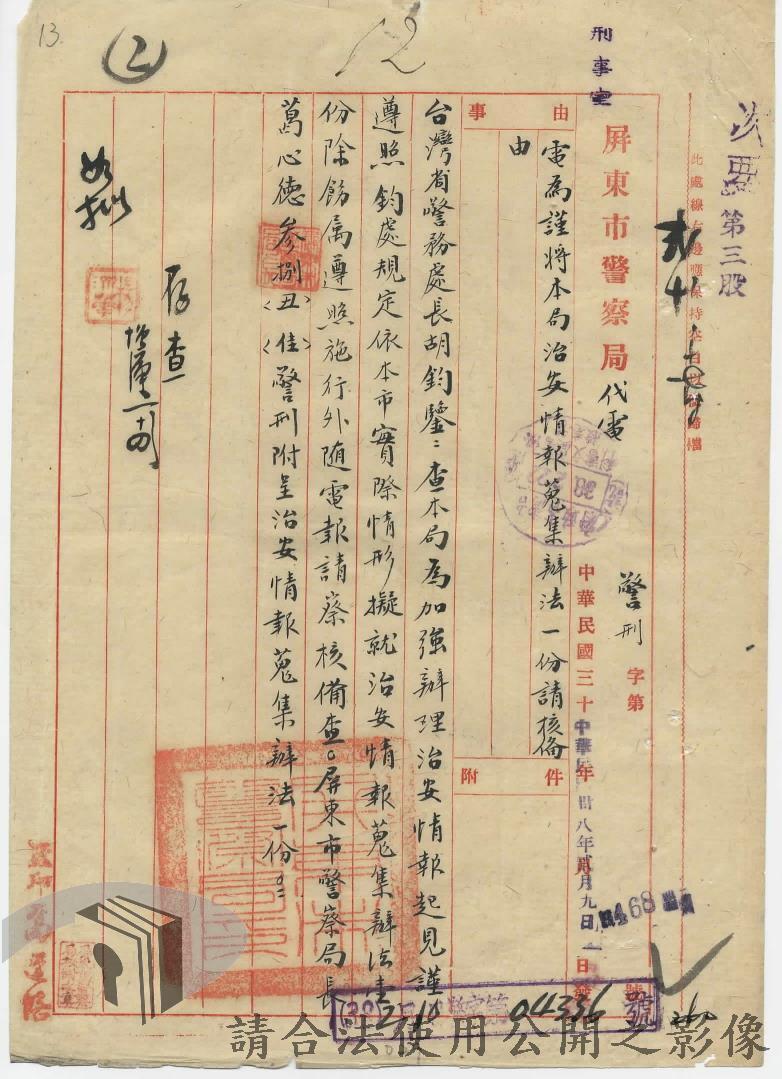 13.
②
12
刑事室
第三股
屏東市警察局代電
警刑字第 號
中華民國三十 年
中華民國卅八年貳月九日
468
事由
電為謹將本局治安情報蒐集辦法一份請核備
由
附件
台灣省警務處長胡鈞鑒：查本局為加強辦理治安情報起見謹
遵照鈞處規定依本市實際情形擬就治安情報蒐集辦法壹
份除飭属遵照施行外隨電報請察核備查。屏東市警察局長
葛心德參捌丑（佳）警刑附呈治安情報蒐集辦法一份。
存查
如擬
字第 04336 號
請合法使用公開之影像